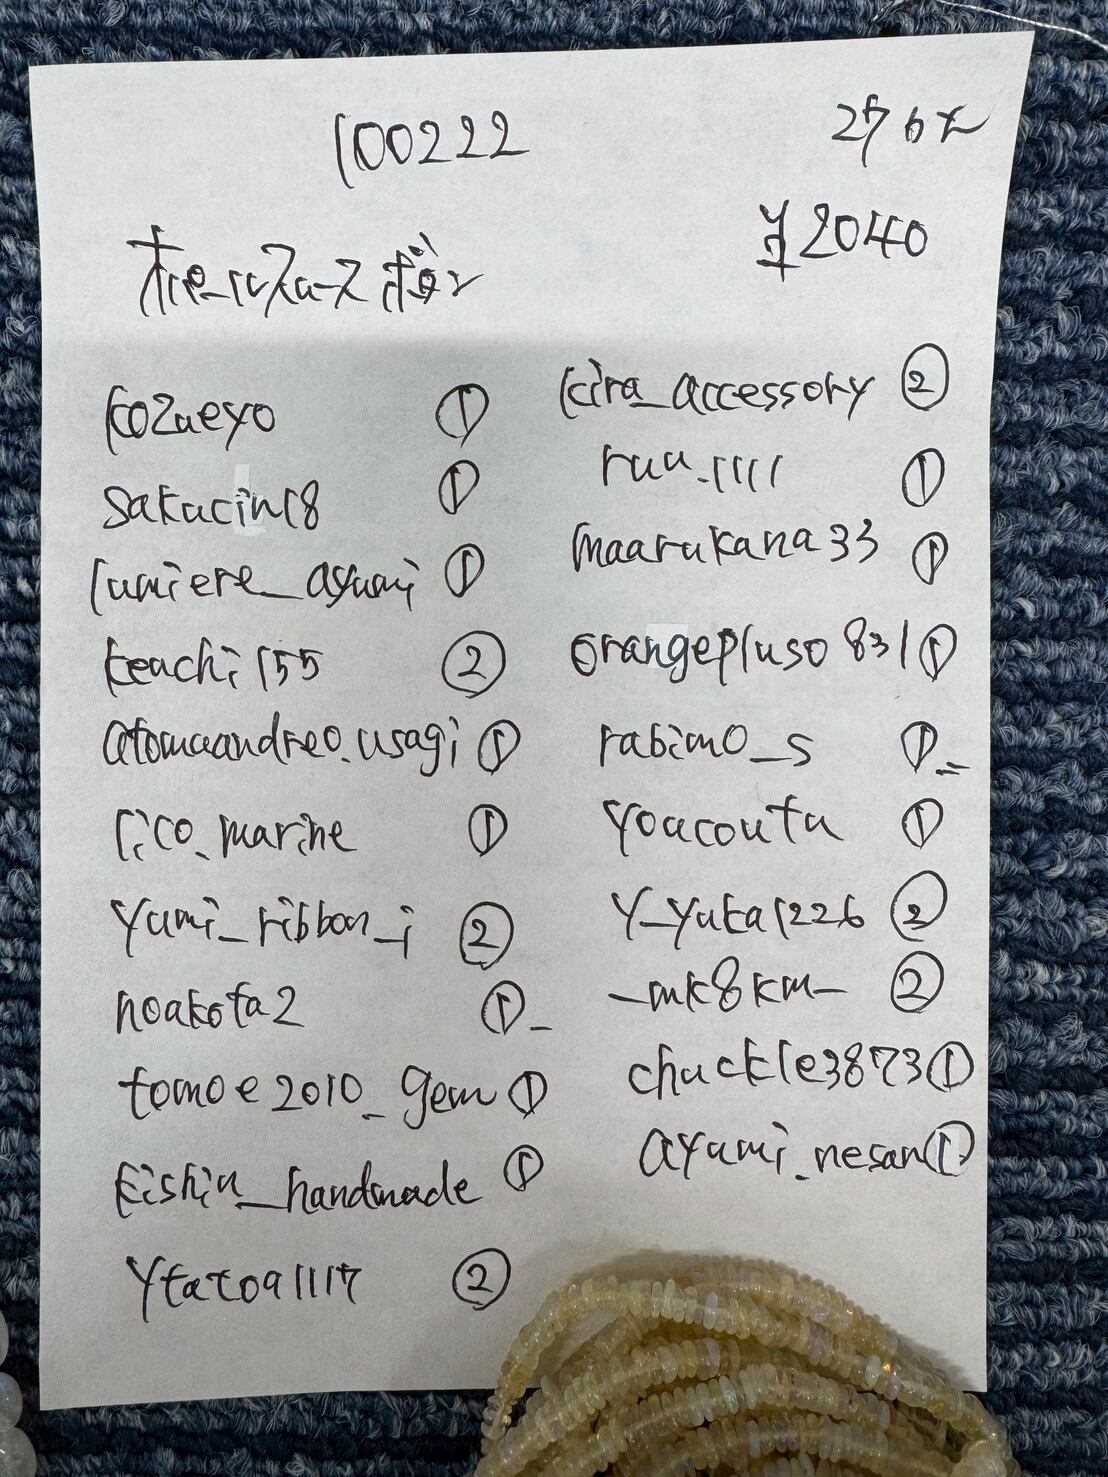 100222
¥2040
kozueyo ①
sakucin18 ①
lumiere_ayumi ①
keachi155 ②
atomuandreo.usagi ①
rico.marine ①
yumi_ribbon_i ②
noakota2 ①
tomoe2010_gem ①
kishin_handmade ①
ytato91117 ②
kira_accessory ②
ruu.1111 ①
maarukana33 ①
orangepluso831 ①
rabimo_s ①
yoacouta ①
y_yuka1226 ②
_mk8km_ ②
chuckle3873 ①
ayumi.nesan ①